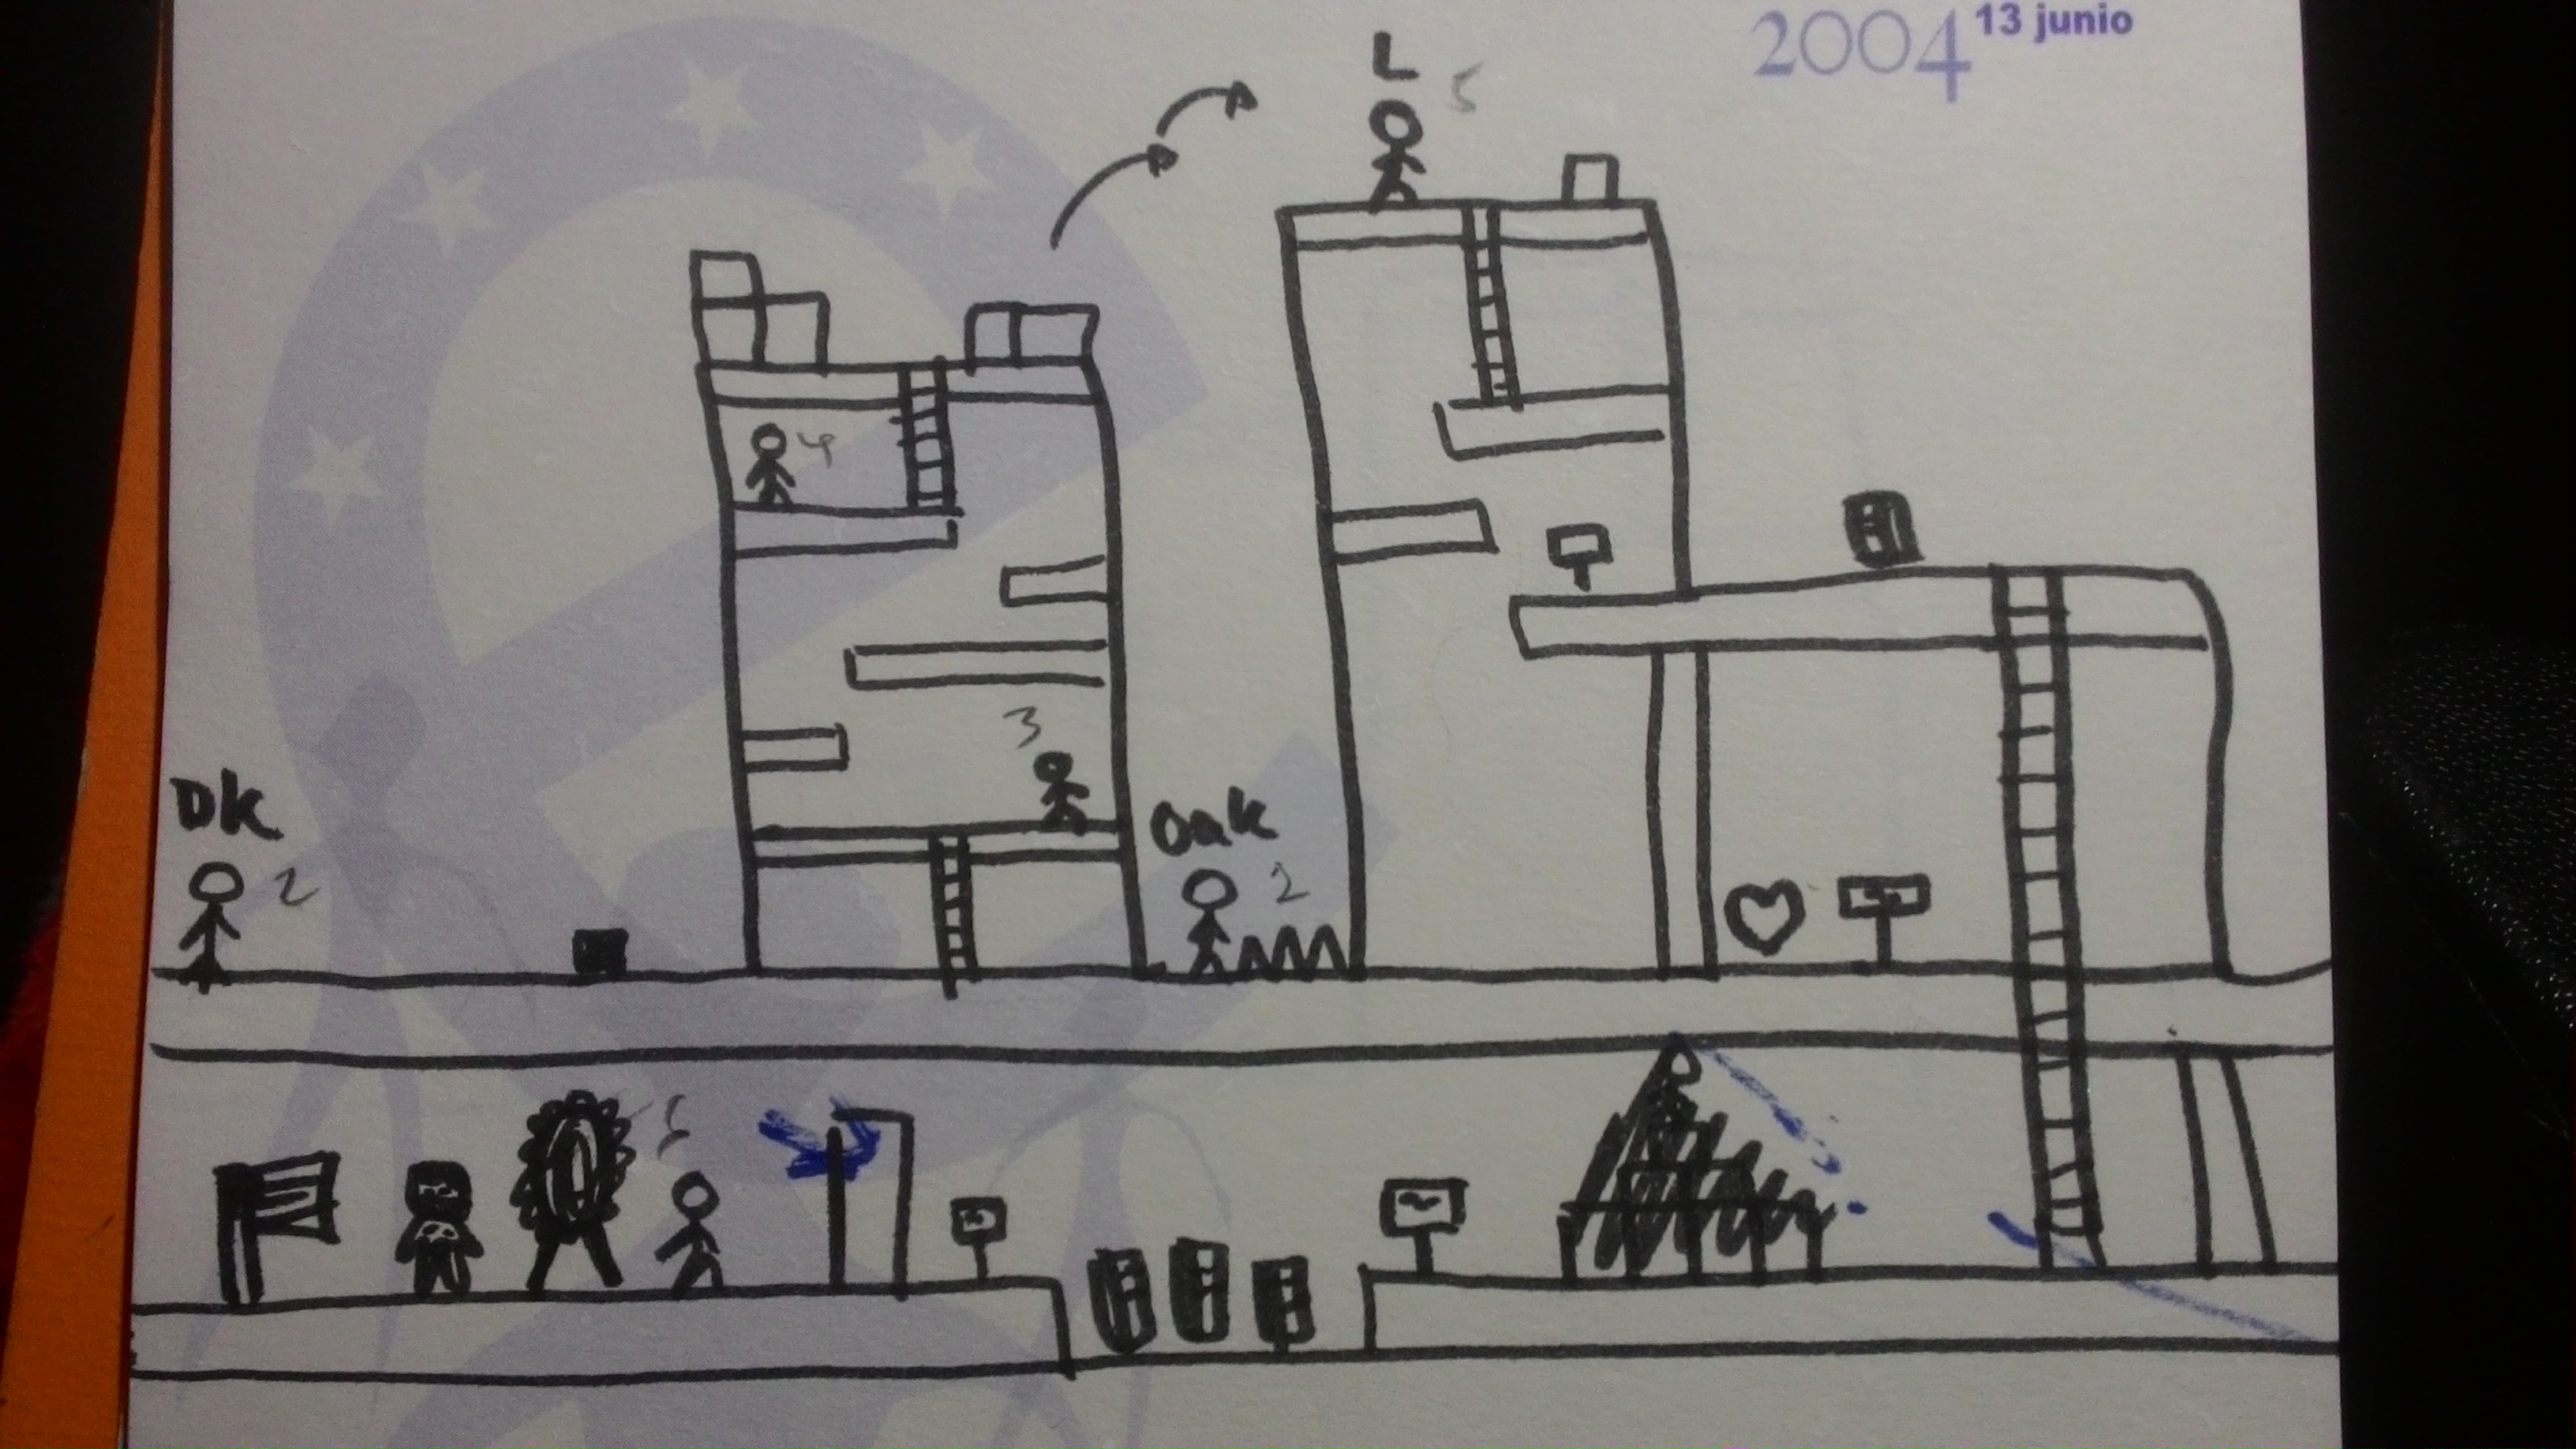 2004 13 junio
L 5
4
3
DK
2
Oak
2
5